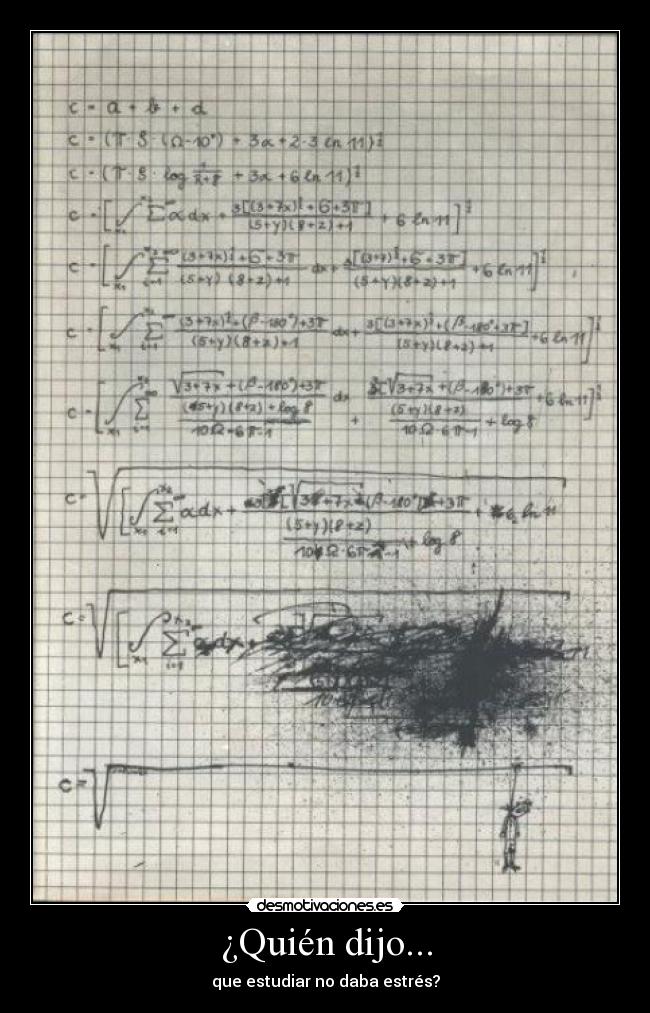 c = a + b + d
c = (π · S · (Ω-10°) + 3α + 2·3 ln 11)^½
c = (π · S · log + 3α + 6 ln 11)^½
c = [∫ Σ α dx + 3[(3+7x)^½ + 6 + 3π] / (5+y)(8+z)+1 + 6 ln 11]^½
c = [∫ Σ (3+7x)^½ + 6 + 3π / (5+y)(8+z)+1 dx + 3[(3+7)^½ + 6 + 3π] / (5+y)(8+z)+1 + 6 ln 11]^½
c = [∫ Σ (3+7x)^½ + (β-180°)+3π / (5+y)(8+z)+1 dx + 3[(3+7x)^½ + (β-180°+3π] / (5+y)(8+z)+1 + 6 ln 11]^½
c = [∫ Σ √3+7x + (β-180°)+3π / (5+y)(8+z) + log 8 / 10Ω·6π-1 dx + 3[√3+7x + (β-180°)+3π / (5+y)(8+z) / 10Ω·6π-1 + log 8 + 6 ln 11]^½
c = √[∫ Σ α dx + √3+7x (β-180°) +3π / (5+y)(8+z) / 10Ω·6π-1 + log 8 + 6 ln 11
c = √[∫ Σ dx +
c = √
desmotivaciones.es
¿Quién dijo...
que estudiar no daba estrés?